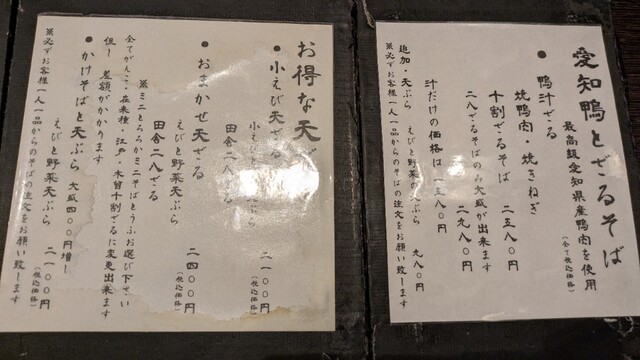 愛知鴨とざるそば
最高級愛知県産鴨肉を使用
(全て税込価格)
● 鴨汁ざる
焼鴨肉・焼きねぎ
十割ざるそば 二三八〇円
二八ざるそばのみ大盛が出来ます
二九八〇円
汁だけの価格は一三八〇円
追加・天ぷら えびと野菜の天ぷら 九八〇円
※必ずお客様一人一品からのそばの注文をお願い致します
お得な天ざる
● 小えび天ざる
田舎二八ざる 二一〇〇円
(税込価格)
● おまかせ天ざる
えびと野菜天ぷら
田舎二八ざる 二四〇〇円
(税込価格)
※ミニとろろかミニそばとうふお選び下さい
全てがんこ・在来種・江戸・木曽十割ざるに変更出来ます
但し 差額がかかります
● かけそばと天ぷら 大盛四〇〇円増し
えびと野菜天ぷら 二一〇〇円
(税込価格)
※必ずお客様一人一品からのそばの注文をお願い致します